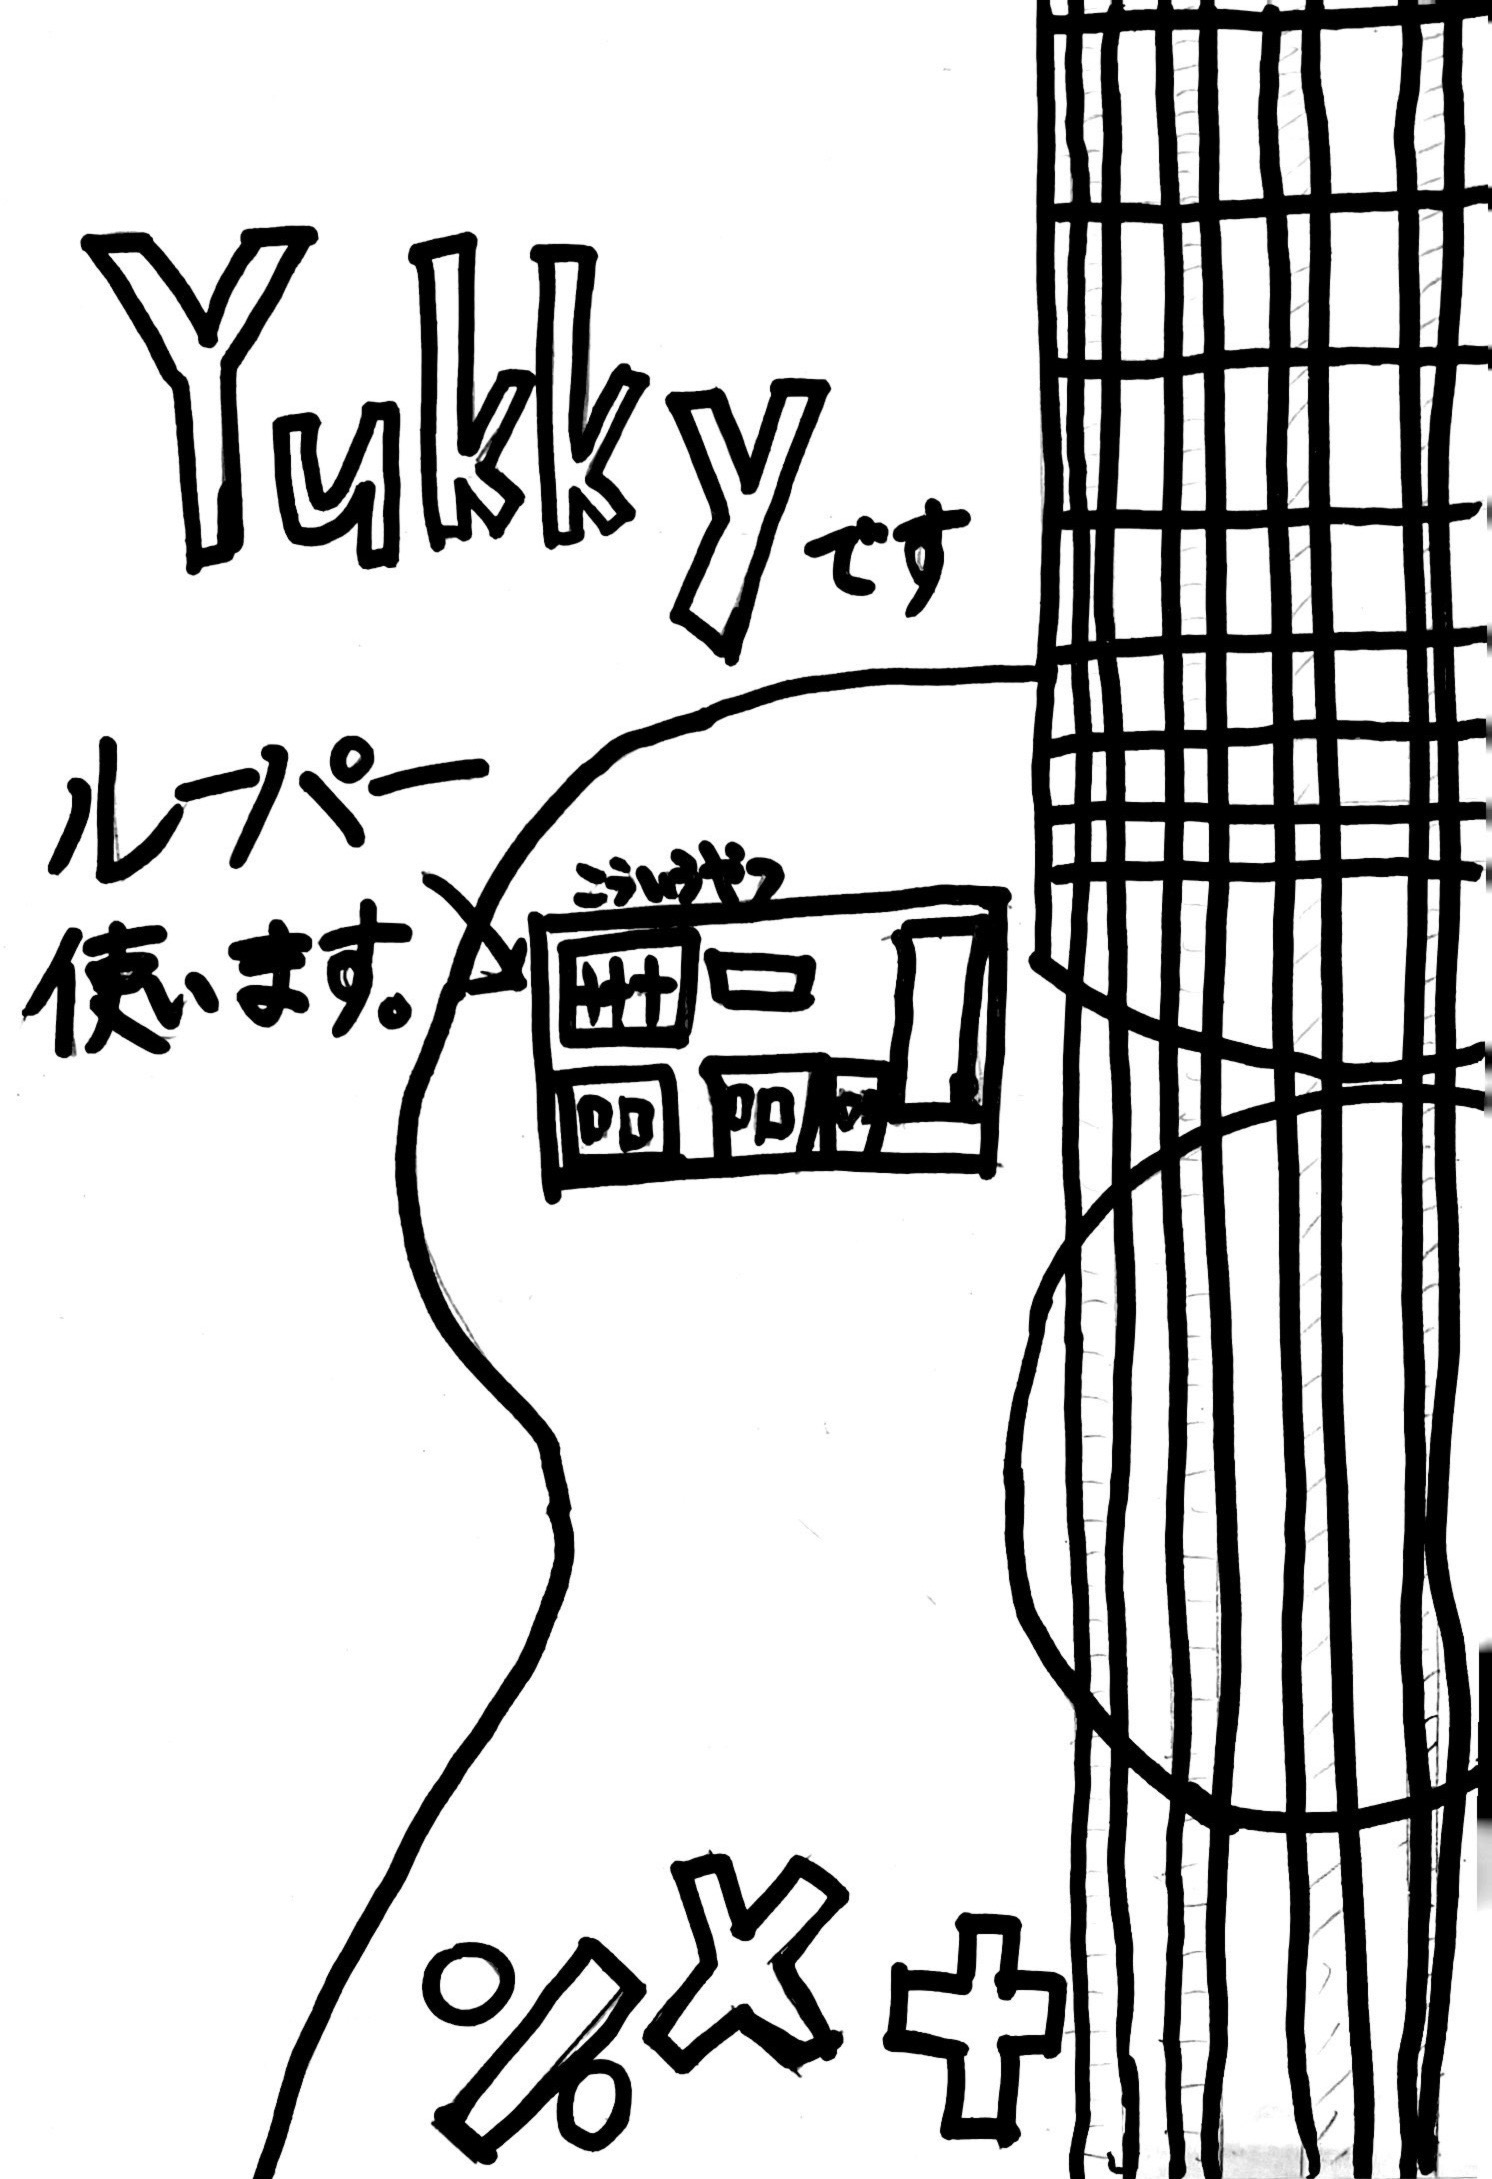 Yukkyです
ルーパー
使います。
こういうやつ
%×+